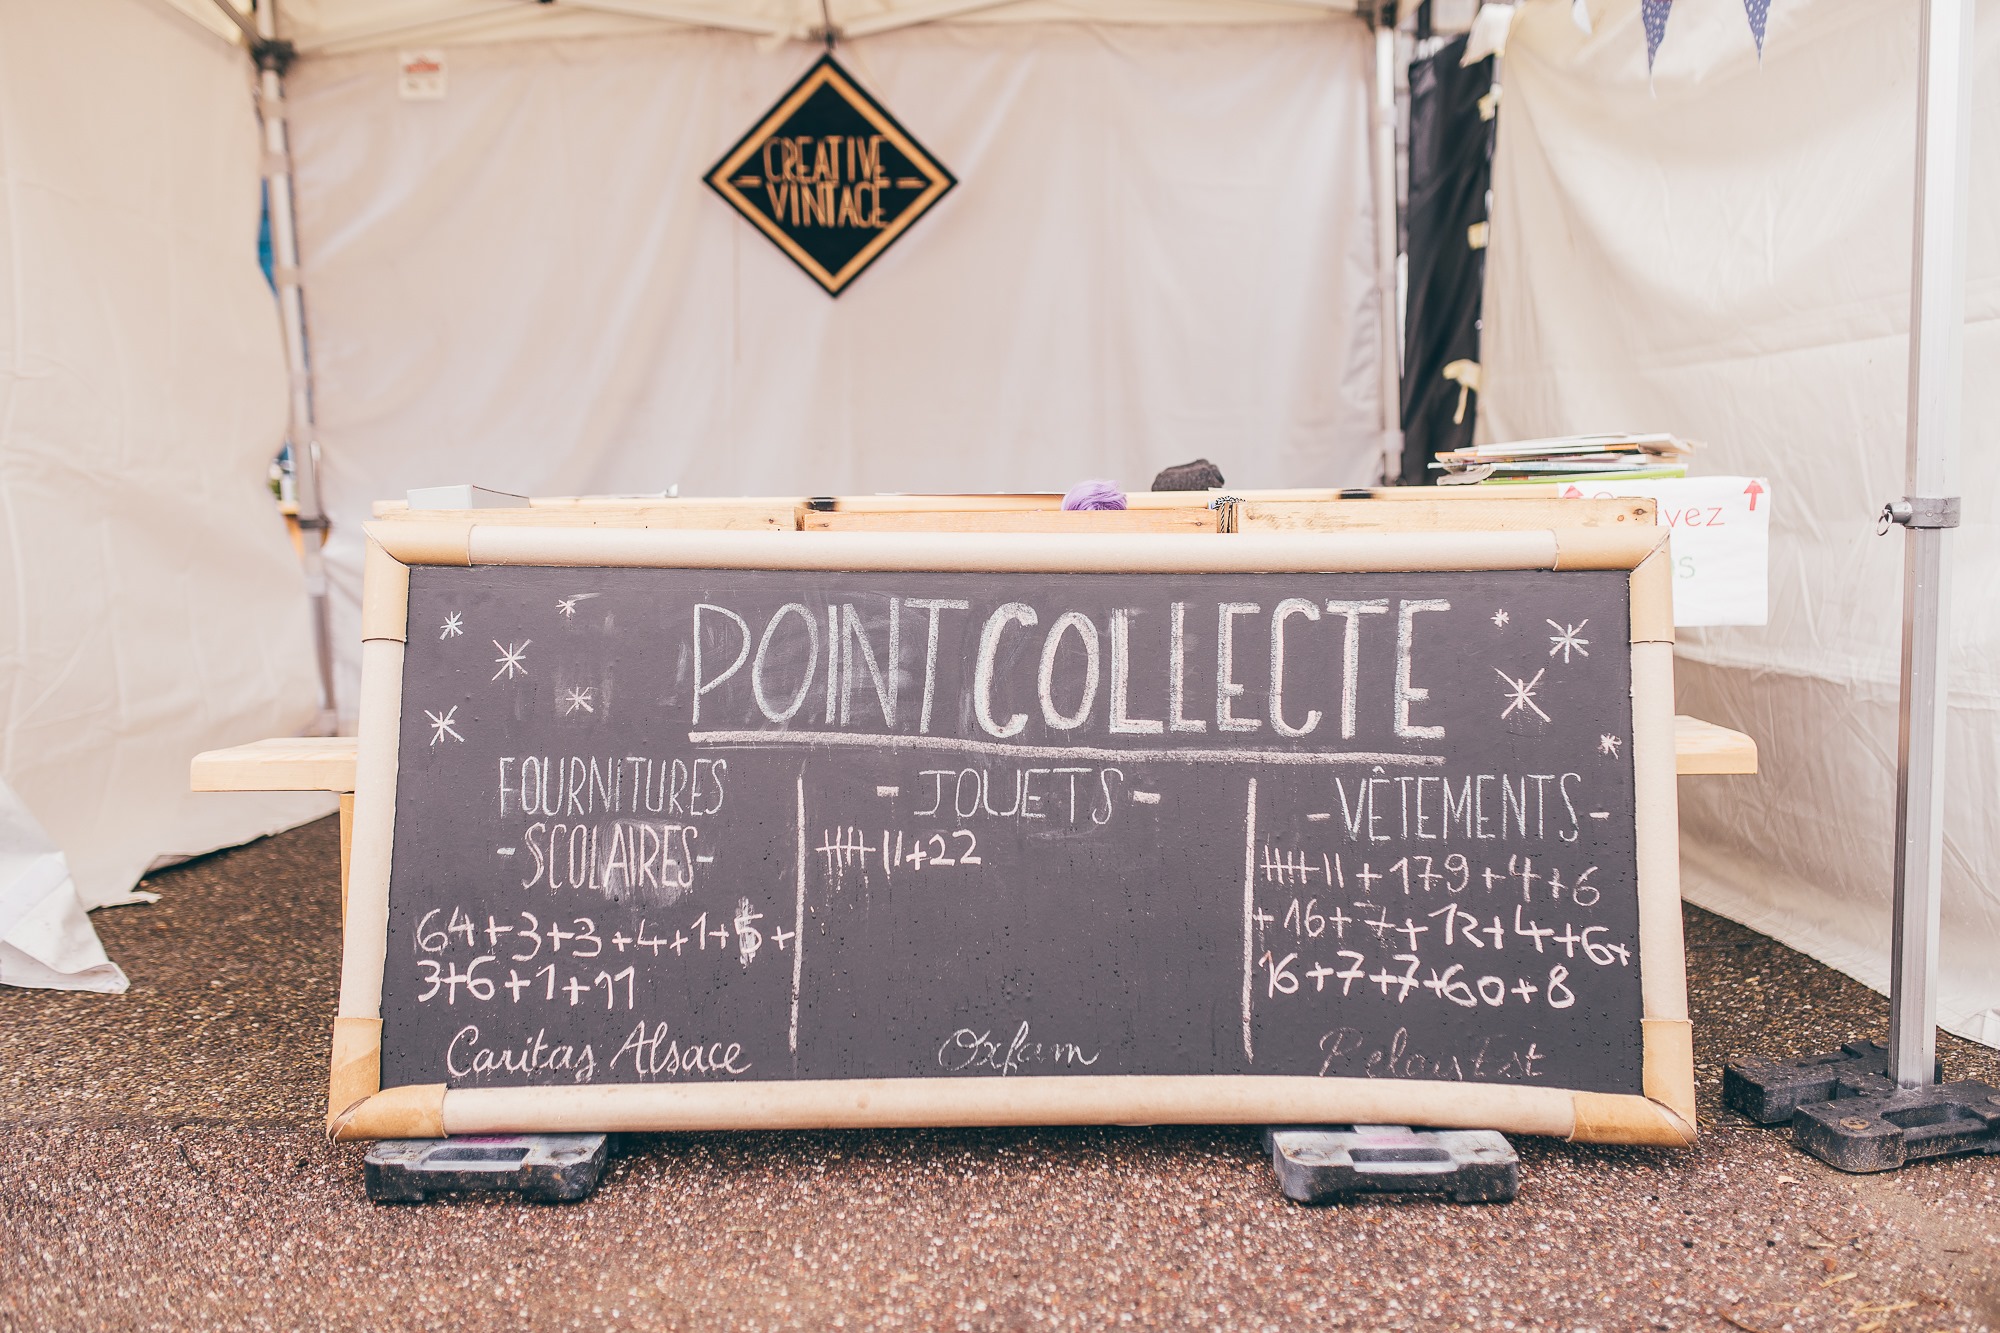 CREATIVE
- VINTAGE -
vez
s
POINT COLLECTE
FOURNITURES
- SCOLAIRES -
64+3+3+4+1+5+
3+6+1+11
Caritas Alsace
- JOUETS -
卌 11+22
Oxfam
- VÊTEMENTS -
卌 11 + 179+4+6
+ 16+7+12+4+6+
16+7+7+60+8